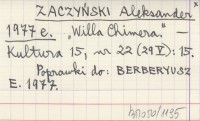 ZACZYŃSKI Aleksander x
1977 e. „Willa Chimera.” —
Kultura 15, nr 22 (29 V): 15.
Poprawki do: BERBERYUSZ
E. 1977.